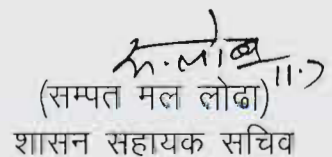 11.7
(सम्पत मल लोढा)
शासन सहायक सचिव